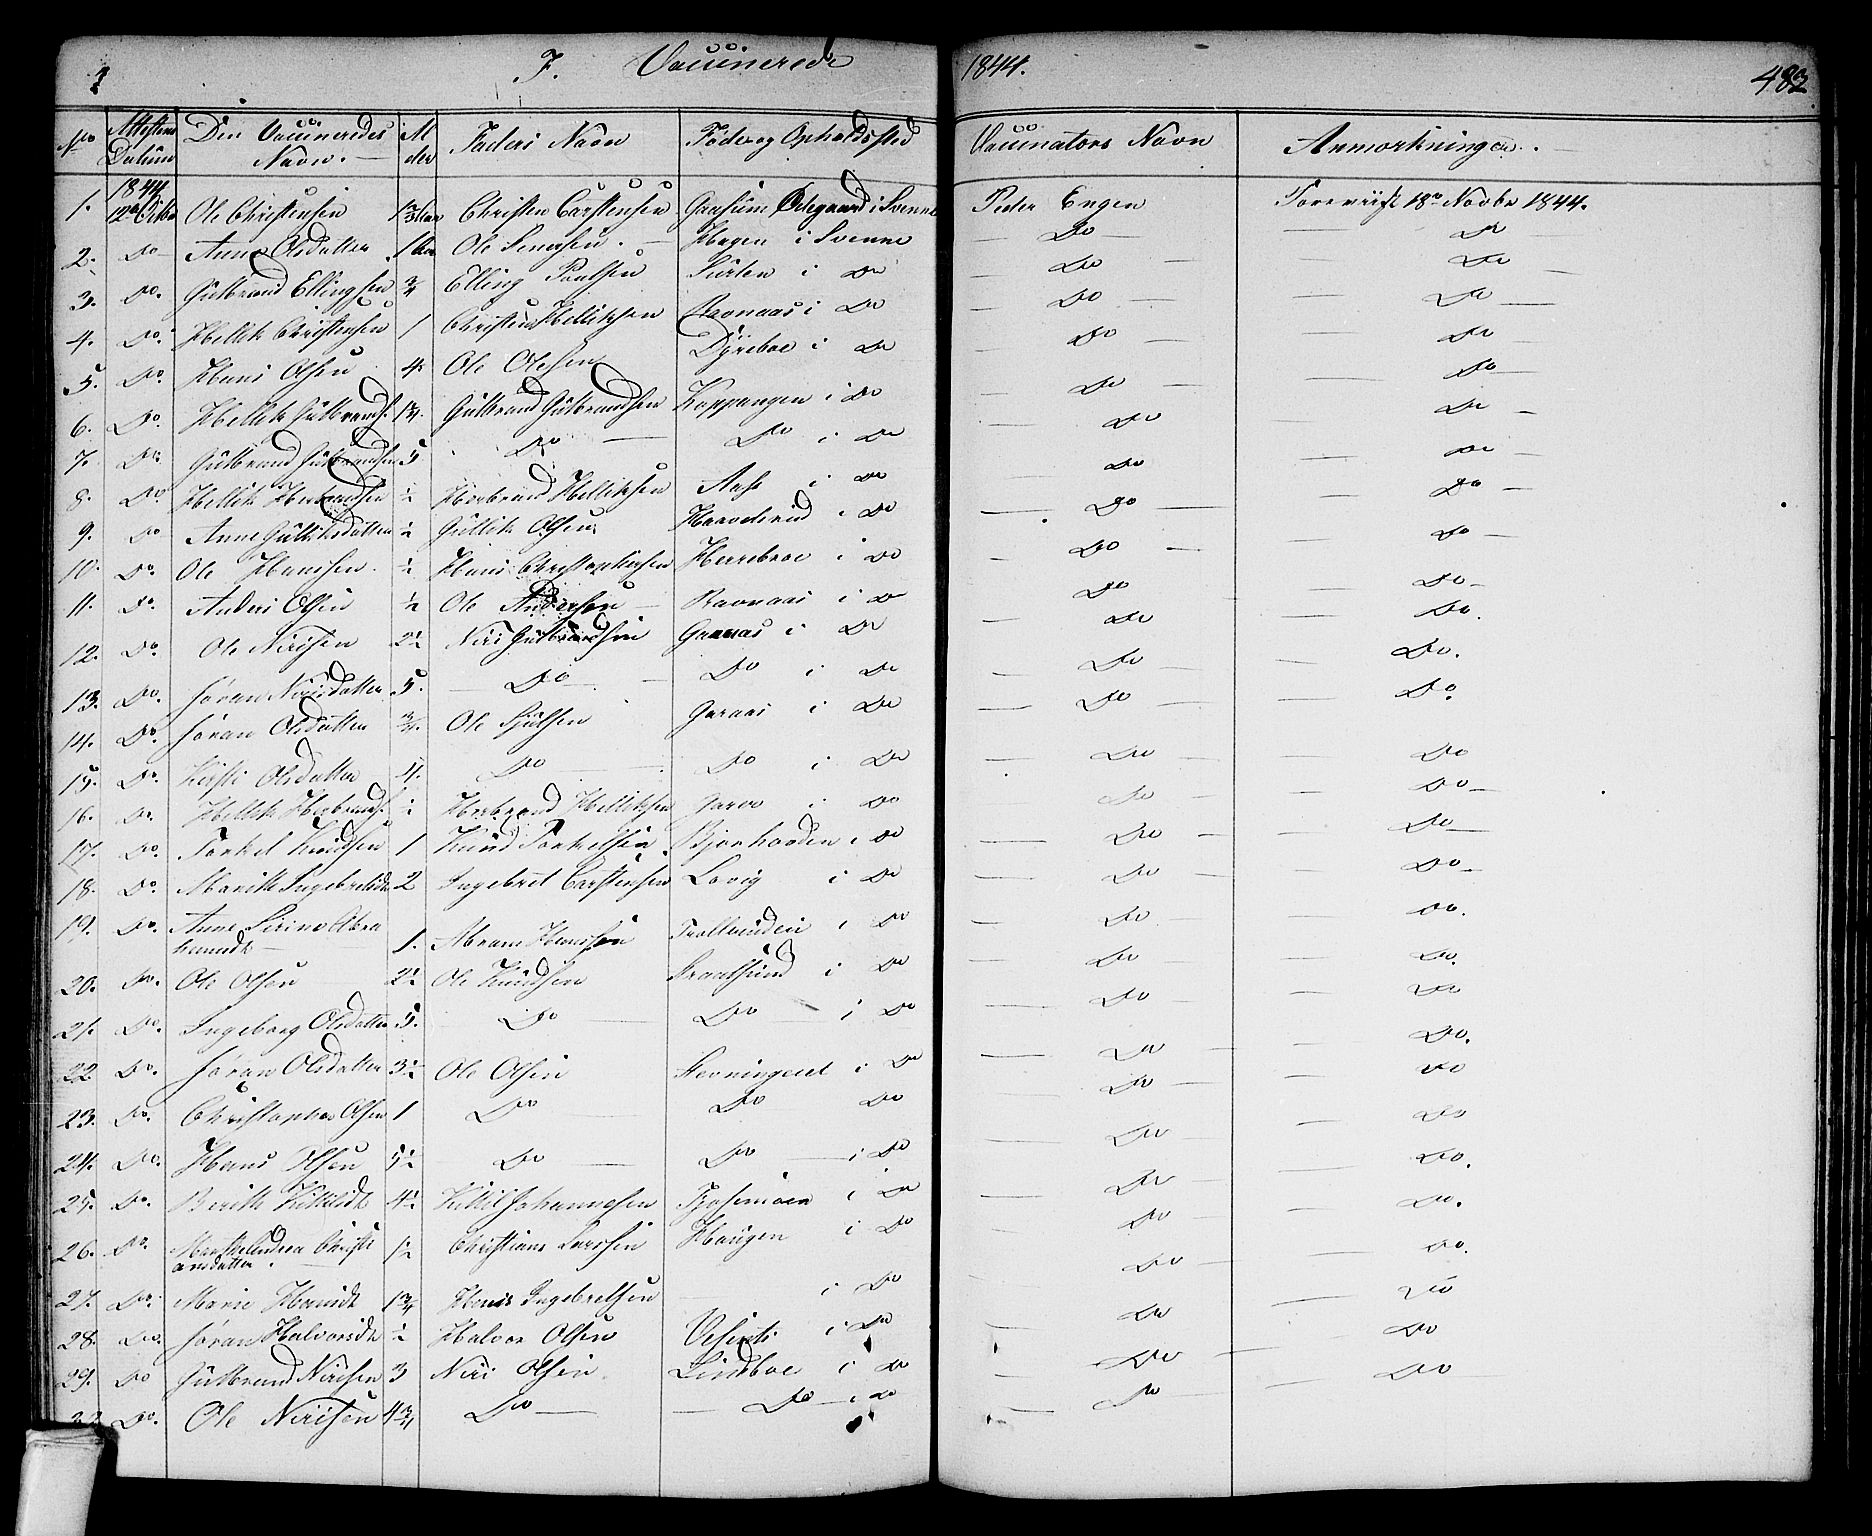 F. Vaccinerede 1844. 483
No Attestens Datum Den Vaccineredes Navn. Alder Faders Navn Føde og Opholdssted Vaccinators Navn Anmærkninger.
1. 1844 12te Octbr Ole Christensen Christen Carstensen Ødegaard i Svenne Peder Engen Foreviist 18de Novbr 1844.
2. Do Anne Olsdatter 1 Aar Ole Hagen i Svenne Do Do
3. Do. Gulbrand Ellingsen 3/4 Elling Paulsen i Do Do Do
4. Do. Hellik Christensen 1 Christen Helliksen Ravnaas i Do Do Do
5. Do. Hans Olsen 4. Ole Olesen Dÿreboe i Do Do Do
6. Do. Hellik Gulbrands. 1 3/4. Gulbrand Gulbrandsen Koppangen i Do Do Do
7. Do. Gulbrand Gulbrandsen 5 Do Do i Do Do Do
8. Do. Hellik Herbrandsen 1/2 Herbrand Helliksen Aase i Do Do Do
9. Do Anne Gulliksdatter 1/2 Gullik Olsen i Do Do Do
10. Do. Ole Hansen 1/2 Hans Christophersen Herrebroe i Do Do Do
11. Do. Anders Olsen 1/2 Ole Andersen Ravnaas i Do Do Do
12. Do. Ole Nirisen 2 1/2 Niri Gulbrandsen Granaas i Do Do Do.
13. Do. Jøran Nirisdatter 5. Do Do i Do Do Do.
14. Do. Jøran Olsdatter 3/4. Ole Garaas i Do Do Do.
15. Do. Kirsti Olsdatter 4. Do Do i Do Do Do
16. Do. Hellik Herbrands. 1/2 Herbrand Helliksen i Do Do Do
17. Do. Torkel Knudsen 1 Knud Torkelsen i Do Do Do
18. Do. Marithe Ingebretsdt 2 Ingebret Carstensen Løvig i Do Do Do
19. Do. Anne Sirine Abra
hamsdt 1. Abram Hansen i Do Do Do.
20. Do. Ole Olsen 2 1/2 Ole Knudsen Fraalsund i Do Do Do.
21. Do. Ingeborg Olsdatter 5. Do Do i Do Do Do
22 Do. Jøran Olsdatter 3 1/2 Ole Olsen i Do Do Do.
23. Do. Christopher Olsen 1 Do Do Do Do Do
24. Do. Hans Olsen 5 1/2 Do Do i Do Do Do
25. Do. Berith Kittilsdt 4 1/2 Kittil Johannesen i Do Do Do.
26. Do. Marthe Andrea Christi
ansdatter. 1/2 Christian Larssen Haugen i Do Do Do.
27. Do. Marie Hansdt 1 3/4 Hans Ingebretsen i Do Do Do.
28. Do. Jøran Halvorsdt 1/2 Halvor Olsen i Do Do Do
29. Do Gulbrand Nirisen 3 Niri Olsen Lindboe i Do Do Do
Do. Ole Nirisen 4 3/4 Do Do i Do Do Do